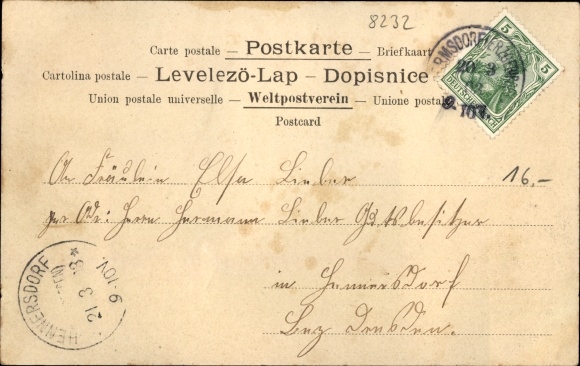 8232
Carte postale — Postkarte — Briefkaart
Cartolina postale — Levelezö-Lap — Dopisnice
Union postale universelle — Weltpostverein — Unione postale
Postcard
5 5
DEUTSCHES REICH
20 3
9-10V.
An Fräulein Elsa Lieber
16,-
per Adr: Herrn Hermann Lieber Gutsbesitzer
in Hennersdorf
Bez Dresden.
HENNERSDORF
21 3 13
9-10V.